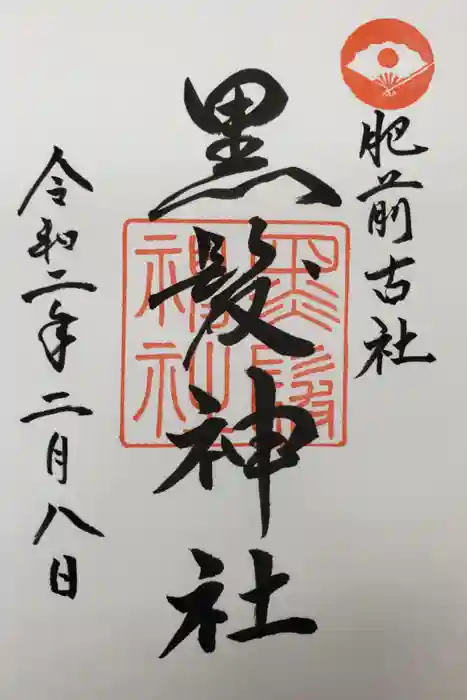 肥前古社
黒髪神社
黒髪神社
令和二年二月八日